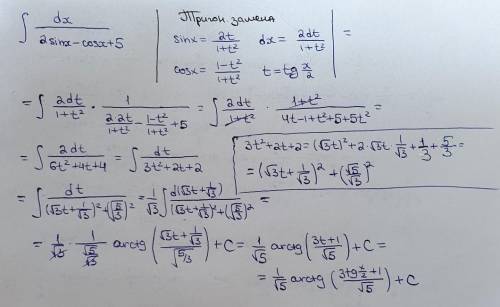 ∫ dx / (2sinx - cosx + 5) | Тригон. замена
sinx = 2t/(1+t²)   dx = 2dt/(1+t²) | =
cosx = (1-t²)/(1+t²)   t = tg x/2
= ∫ 2dt/(1+t²) · 1/(2·2t/(1+t²) - (1-t²)/(1+t²) + 5) = ∫ 2dt/(1+t²) · (1+t²)/(4t-1+t²+5+5t²) =
= ∫ 2dt/(6t²+4t+4) = ∫ dt/(3t²+2t+2)
3t²+2t+2 = (√3t)² + 2·√3t·1/√3 + 1/3 + 5/3 =
= (√3t + 1/√3)² + (√5/√3)²
= ∫ dt/((√3t + 1/√3)² + (√5/√3)²) = 1/√3 ∫ d(√3t + 1/√3)/((√3t + 1/√3)² + (√5/√3)²) =
= 1/√3 · 1/(√5/√3) arctg ((√3t + 1/√3)/√(5/3)) + C = 1/√5 arctg (3t+1/√5) + C =
= 1/√5 arctg ((3tg x/2 + 1)/√5) + C